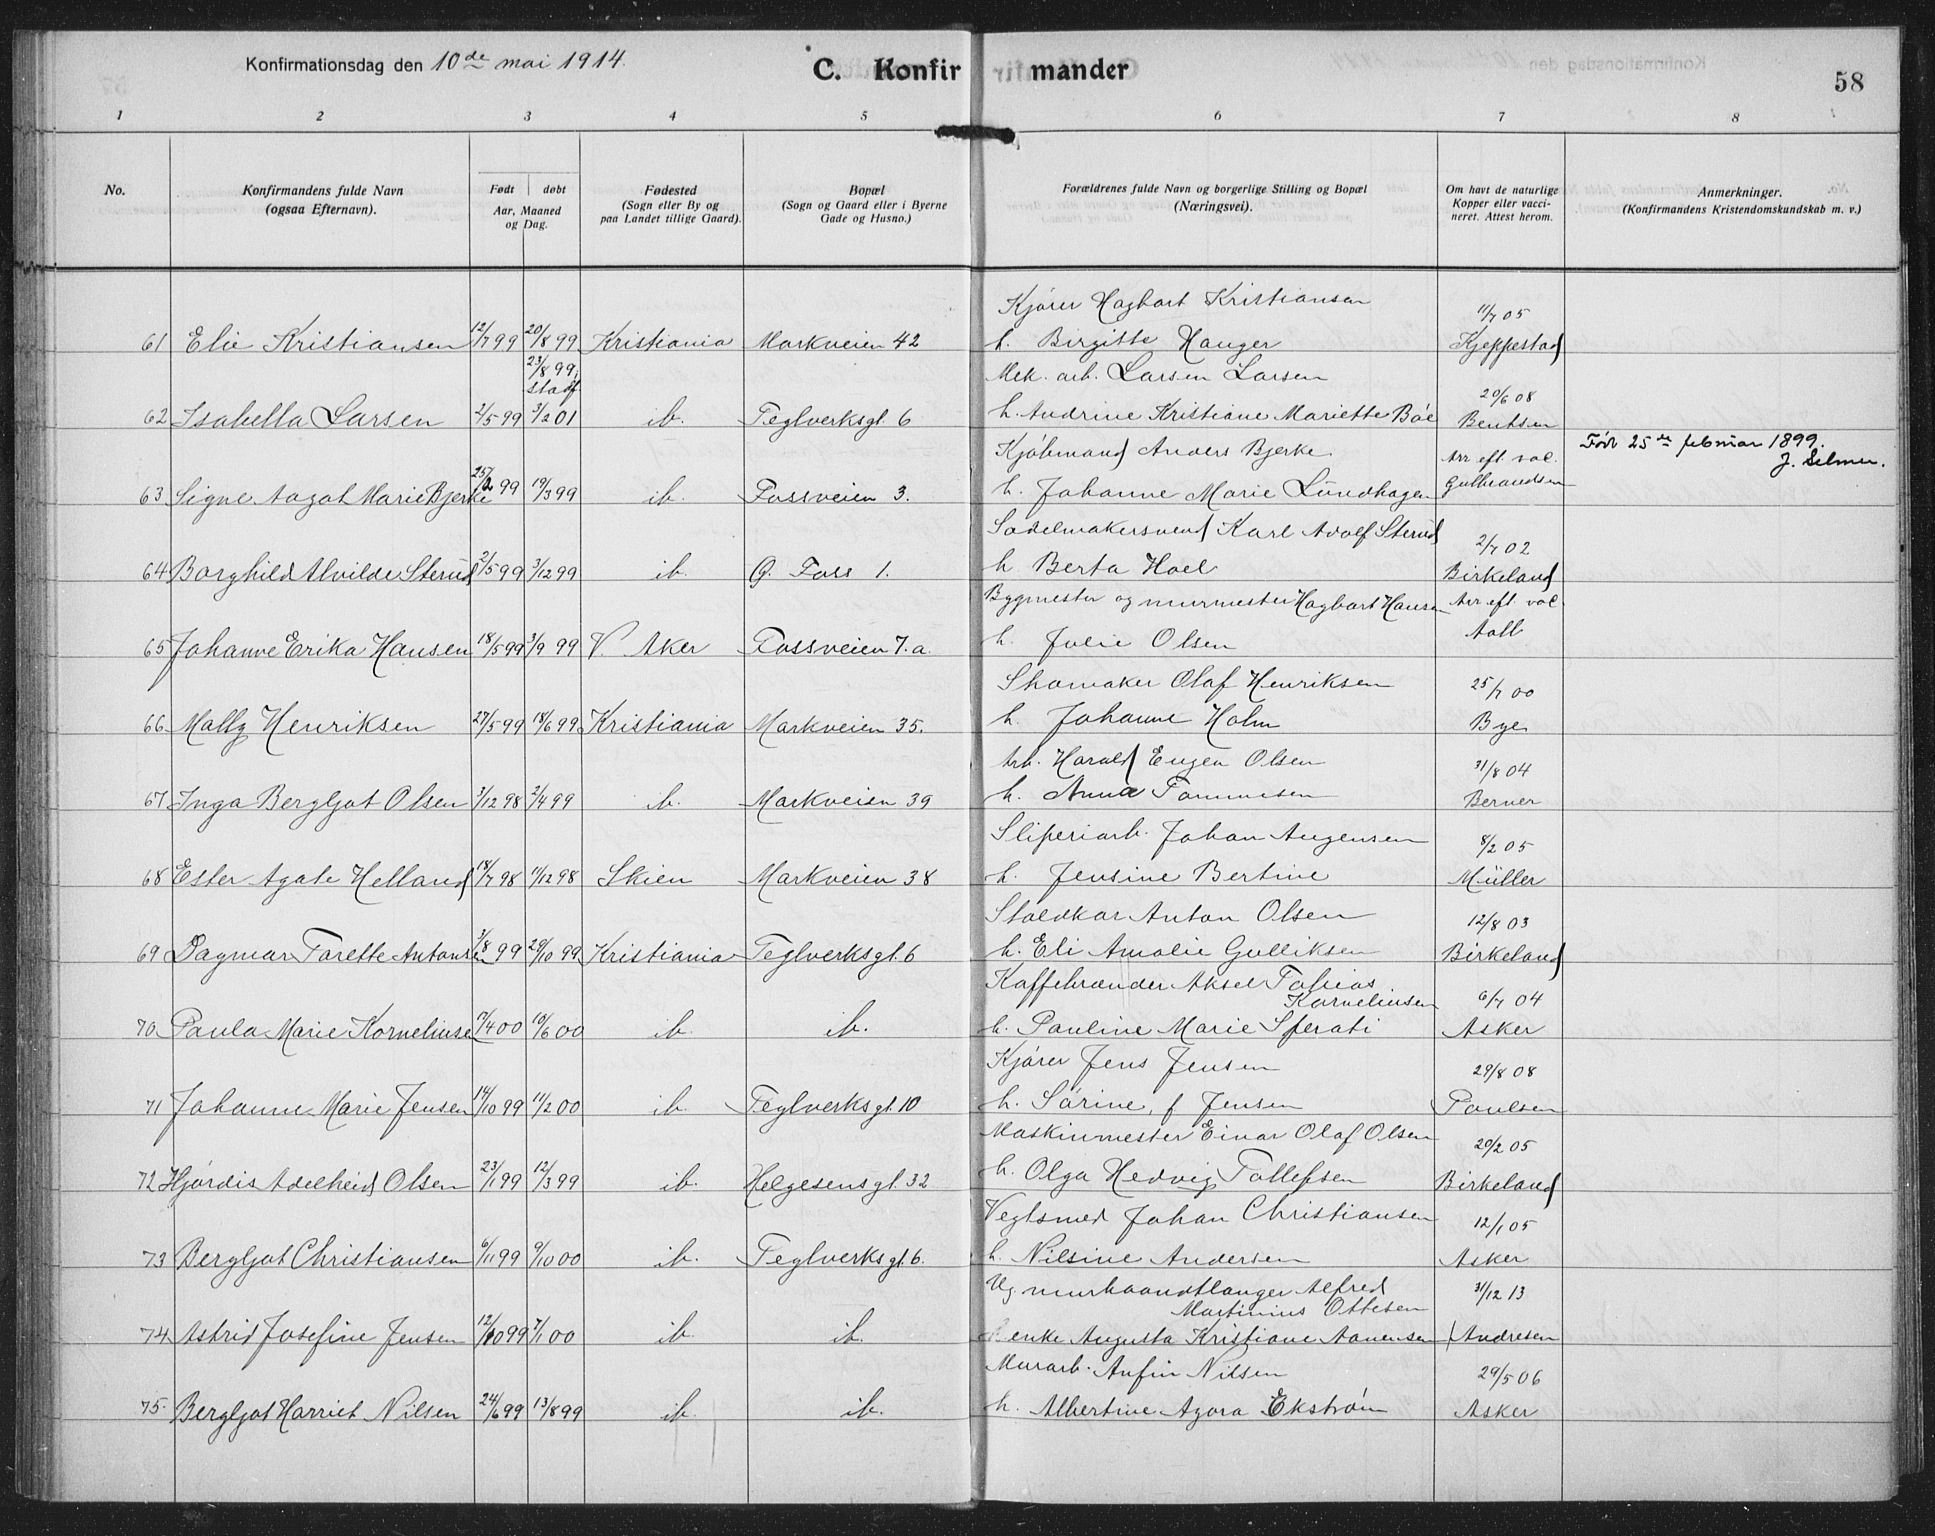 Konfirmationsdag den 10de mai 1914.
C. Konfirmander
58
1 2 3 4 5 6 7 8
No.
Konfirmandens fulde Navn
(ogsaa Efternavn).
Født | døbt
Aar, Maaned
og Dag.
Fødested
(Sogn eller By og
paa Landet tillige Gaard).
Bopæl
(Sogn og Gaard eller i Byerne
Gade og Husno.)
Forældrenes fulde Navn og borgerlige Stilling og Bopæl
(Næringsvei).
Om havt de naturlige
Kopper eller vacci-
neret. Attest herom.
Anmerkninger.
(Konfirmandens Kristendomskundskab m. v.)
Kjører Hagbart Kristiansen 11/7 05
61 Elie Kristiansen 12/7 99 20/8 99 Kristiania Markveien 42 h. Birgitte Hauger Kjeppestad
23/8 99, stadf. Mek. arb. Larsen Larsen 20/6 08
62 Isabella Larsen 2/5 99 3/2 01 ib. Teglverksgt. 6 h. Andrine Kristiane Mariette Bøe Bentsen
Kjøbmand Anders Bjerke Arr eft. vac. Født 25de februar 1899.
J. Selmer.
63 Signe Aagot Marie Bjerke 25/2 99 19/3 99 ib. Fossveien 3. h. Johanne Marie Lundhagen Gulbrandsen
Sadelmakersvend Karl Adolf Sterud 2/7 02
64 Borghild Alvilde Sterud 2/5 99 3/12 99 ib. G. Foss 1. h. Berta Hoel Birkeland
Bygmester og murmester Hagbart Hansen Arr eft. vac.
65 Johanne Erika Hansen 18/5 99 3/9 99 V. Aker Fossveien 7.a. h. Julie Olsen Aall
Skomaker Olaf Henriksen 25/7 00
66 Mally Henriksen 27/5 99 18/6 99 Kristiania Markveien 35. h. Johanne Holm Bye
Arb. Harald Eugen Olsen 31/8 04
67 Inga Bergljot Olsen 3/12 98 2/4 99 ib. Markveien 39 h. Anna Tommesen Berner
Sliperiarb. Johan Augensen 8/2 05
68 Ester Agate Helland 18/7 98 11/12 98 Skien Markveien 38 h. Jensine Bertine Müller
Staldkar Anton Olsen 12/8 03
69 Dagmar Torette Antonsen 3/8 99 29/10 99 Kristiania Teglverksgt. 6 h. Eli Amalie Gulliksen Birkeland
Kaffebrænder Aksel Tobias
Korneliusen 6/7 04
70 Paula Marie Korneliusen 7/4 00 10/6 00 ib. ib. h. Pauline Marie Sperati Asker
Kjører Jens Jensen 29/8 08
71 Johanne Marie Jensen 14/10 99 11/2 00 ib. Teglverksgt. 10 h. Sørine, f Jensen Paulsen
Maskinmester Einar Olaf Olsen 20/2 05
72 Hjørdis Adelheid Olsen 23/1 99 12/3 99 ib. Helgesensgt. 32 h. Olga Hedvig Tollefsen Birkeland
Vegtsmed Johan Christiansen 12/1 05
73 Bergljot Christiansen 6/11 99 9/10 00 ib. Teglverksgt. 6. h. Nilsine Andersen Asker
Ug. murhaandtlanger Alfred
Martinius Ottesen 31/12 13
74 Astrid Josefine Jensen 12/10 99 7/1 00 ib. ib. enke Augusta Kristiane Aanensen Andresen
Murarb. Anfin Nilsen 29/5 06
75 Bergljot Harriet Nilsen 24/6 99 13/8 99 ib. ib. h. Albertine Agora Ekstrøm Asker